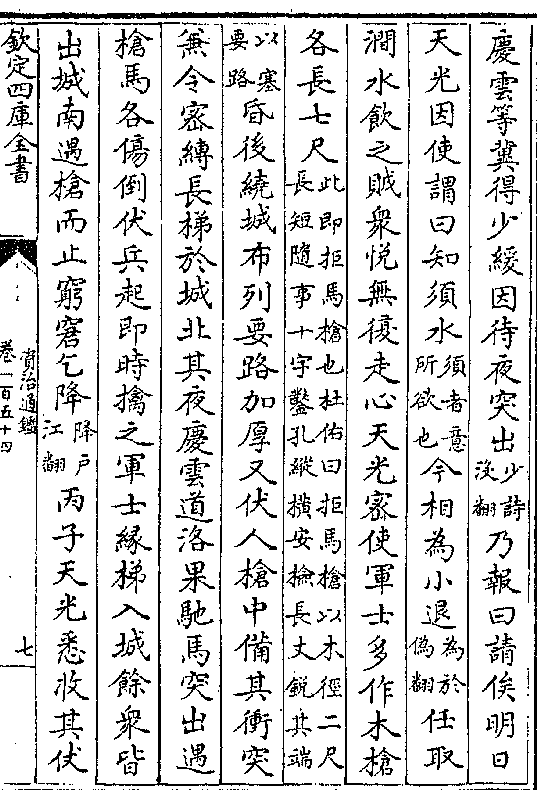 慶雲等冀得少緩因待夜突出少詩沼翻乃報曰請俟明日
天光因使謂曰知須水須者意所欲也今相為小退為於偽翻任取
澗水飲之賊衆悦無復走心天光密使軍士多作木槍
各長七尺此即拒馬槍也杜佑曰拒馬槍以木徑二尺長短隨事十字鑿孔縱横安檢長丈鋭其端
以塞要路昏後繞城布列要路加厚又伏人槍中備其衝突
兼令密縛長梯於城北其夜慶雲道洛果馳馬突出遇
槍馬各傷倒伏兵起即時擒之軍士緣梯入城餘衆皆
出城南遇槍而止窮窘乞降降户江翻丙子天光悉收其仗
欽定四庫全書
資治通鑑
卷一百五十四
七